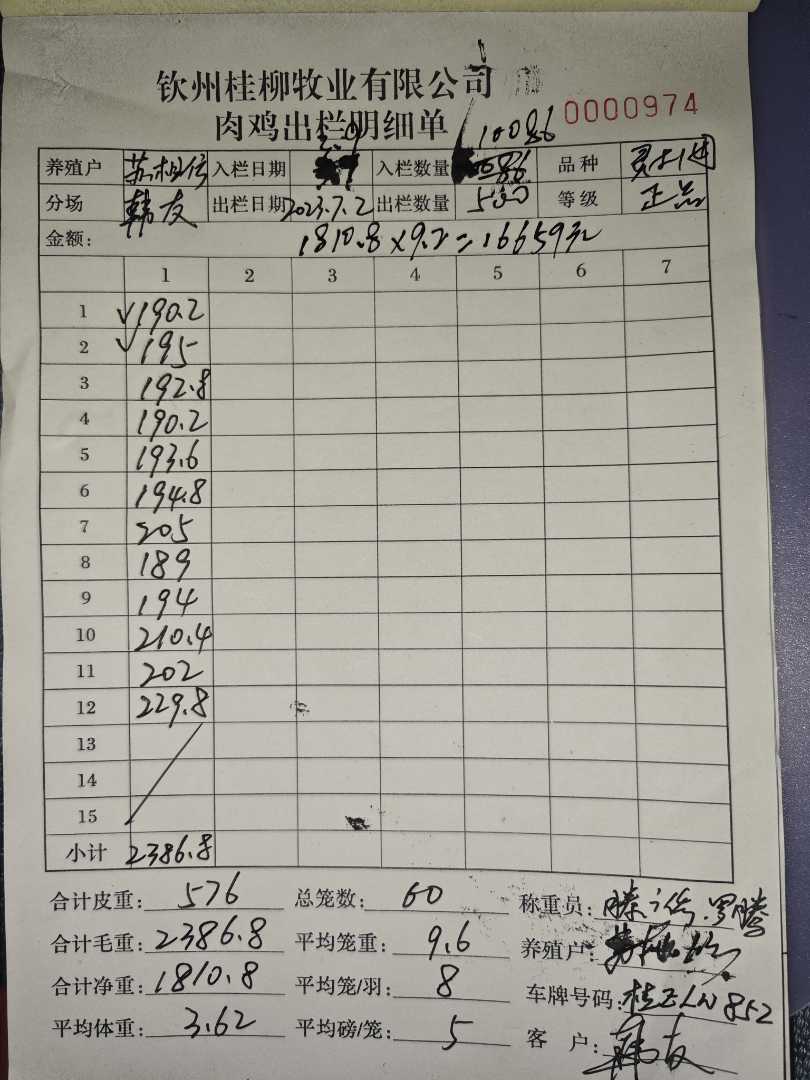 钦州桂柳牧业有限公司
肉鸡出栏明细单 0000974
10086
养殖户 苏相信 入栏日期 入栏数量 086 品种
分场 韩友 出栏日期 2023.7.2 出栏数量 500 等级 正品
金额: 1810.8×9.2=16659元
1 2 3 4 5 6 7
1 √190.2
2 √195
3 192.8
4 190.2
5 193.6
6 194.8
7 205
8 189
9 194
10 210.4
11 202
12 229.8
13
14
15
小计 2386.8
合计皮重: 576 总笼数: 60 称重员:
合计毛重: 2386.8 平均笼重: 9.6 养殖户:
合计净重: 1810.8 平均笼/羽: 8 车牌号码: 852
平均体重: 3.62 平均磅/笼: 5 客 户: 韩友